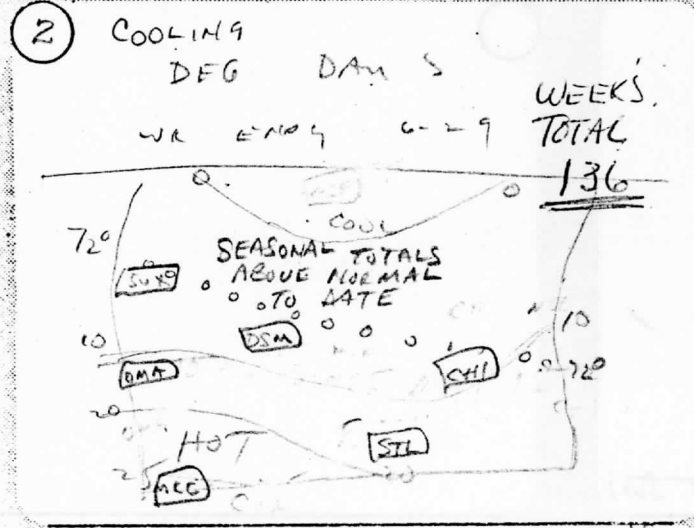 2
COOLING
DEG DAYS
WK ENDG 6-29
WEEK'S
TOTAL
136
COOL
72°
SEASONAL TOTALS
ABOVE NORMAL
TO DATE
SUX
DSM
10
10
OMA
CHI
72°
20
HOT
STL
20
25
MKE